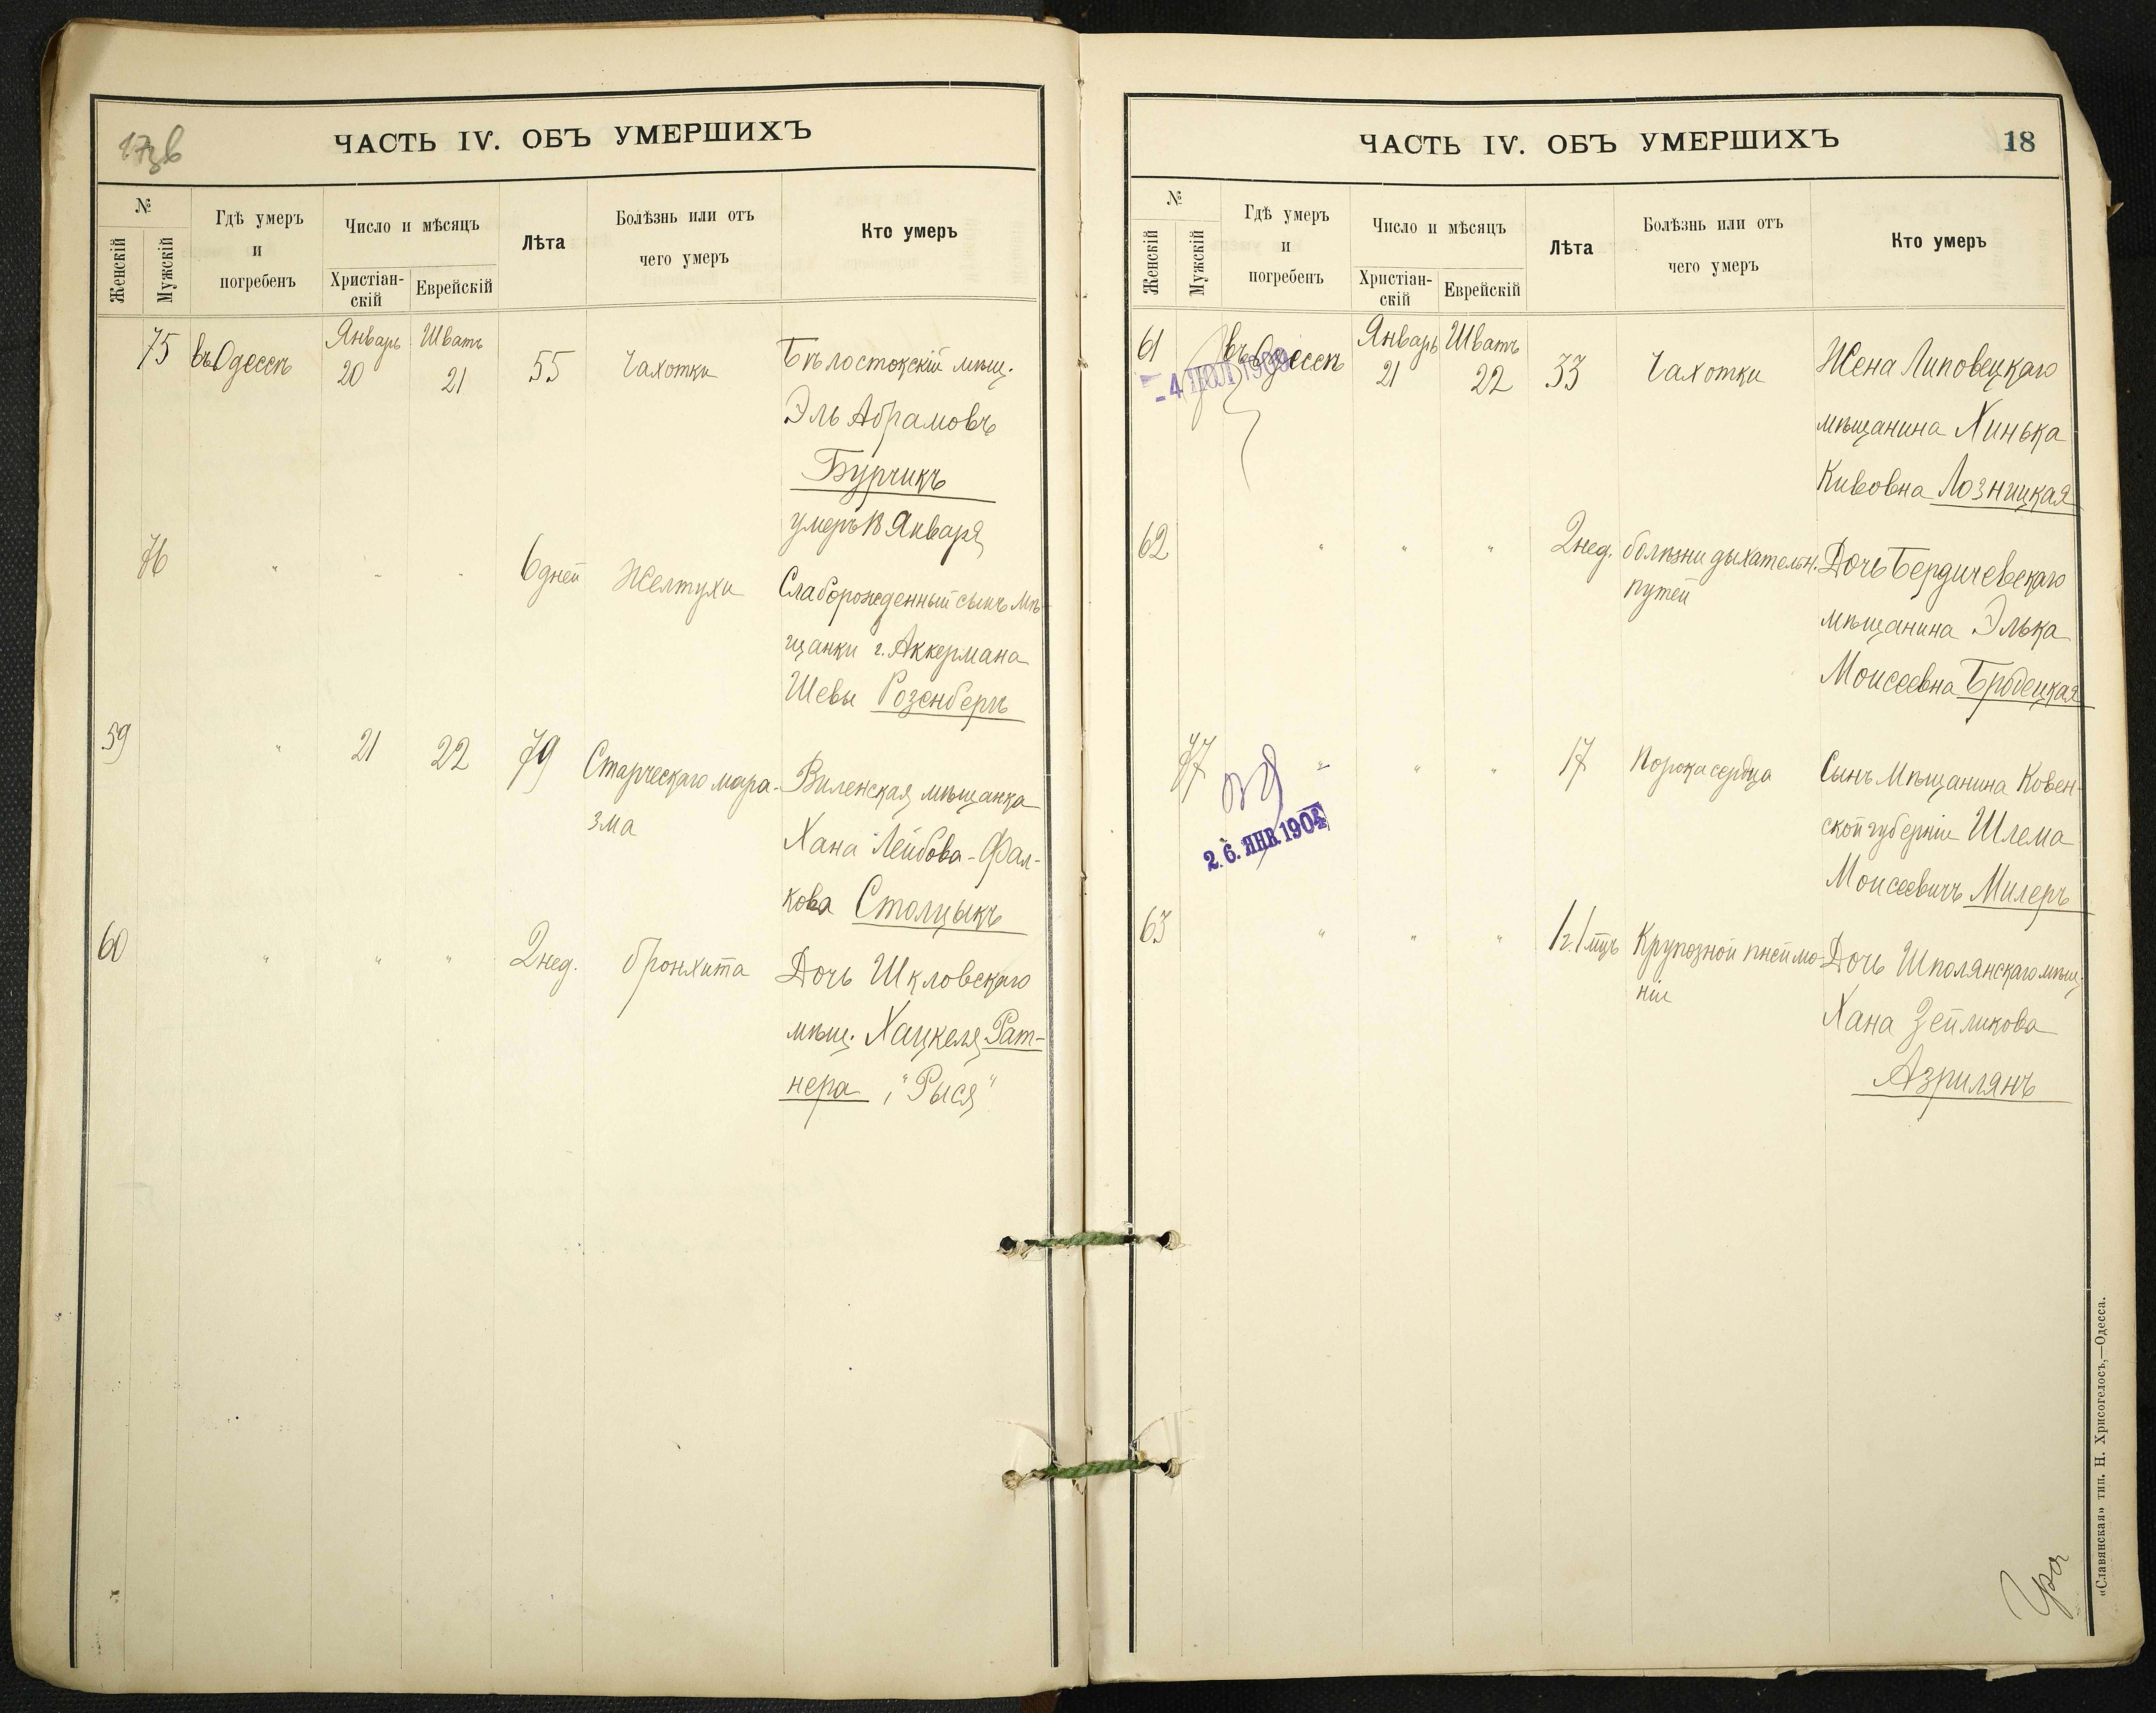 17зв
ЧАСТЬ IV. ОБЪ УМЕРШИХЪ
№
Женскій
Мужскій
Гдѣ умеръ
и
погребенъ
Число и мѣсяцъ
Христіан-
скій
Еврейскій
Лѣта
Болѣзнь или отъ
чего умеръ
Кто умеръ
75 въ Одессѣ Январь 20 Шватъ 21 55 Чахотки Бѣлостокскій мѣщ.
Эль Абрамовъ
Бурчикъ
умеръ 18 Января
76 " - - 6 дней Желтухи Слаборожденный сынъ мѣ-
щанки г. Аккермана
Шевы Розенбергъ
59 " 21 22 79 Старческаго мара- Виленская мѣщанка
зма Хана Лейбова-Фал-
кова Столцыкъ
60 " " " 2 нед. бронхита Дочь Шкловскаго
мѣщ. Хацкеля Рат-
нера, "Рыся"
ЧАСТЬ IV. ОБЪ УМЕРШИХЪ 18
№
Женскій
Мужскій
Гдѣ умеръ
и
погребенъ
Число и мѣсяцъ
Христіан-
скій
Еврейскій
Лѣта
Болѣзнь или отъ
чего умеръ
Кто умеръ
61 въ Одессѣ Январь 21 Шватъ 22 33 Чахотки Жена Липовецкаго
- 4 ІЮЛ 1909
мѣщанина Хинька
Кивовна Лозницкая
62 " " " 2 нед. болѣзни дыхательн. Дочь Бердичевскаго
путей мѣщанина Элька
Моисеевна Бродецкая
77 " " " 17 Порока сердца Сынъ Мѣщанина Ковен-
26. ЯНВ. 1904
ской губерніи Шлема
Моисеевичъ Милеръ
63 " " " 1 г. 1 мцъ Крупозной пнеймо- Дочь Шполянскаго мѣщ.
ніи Хана Зейликова
Азрилянъ
«Славянская» тип. Н. Хрисогелосъ,—Одесса.